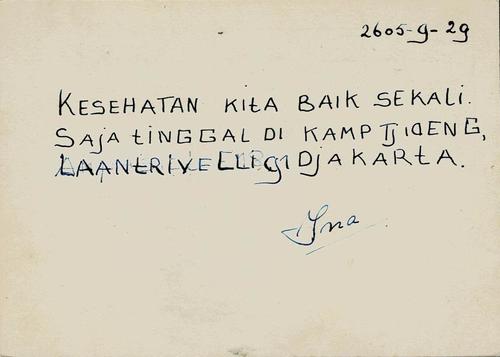 2605-9-29
KESEHATAN KITA BAIK SEKALI.
SAJA TINGGAL DI KAMP TJIDENG,
LAANTRIVELLI DJAKARTA.
Ina